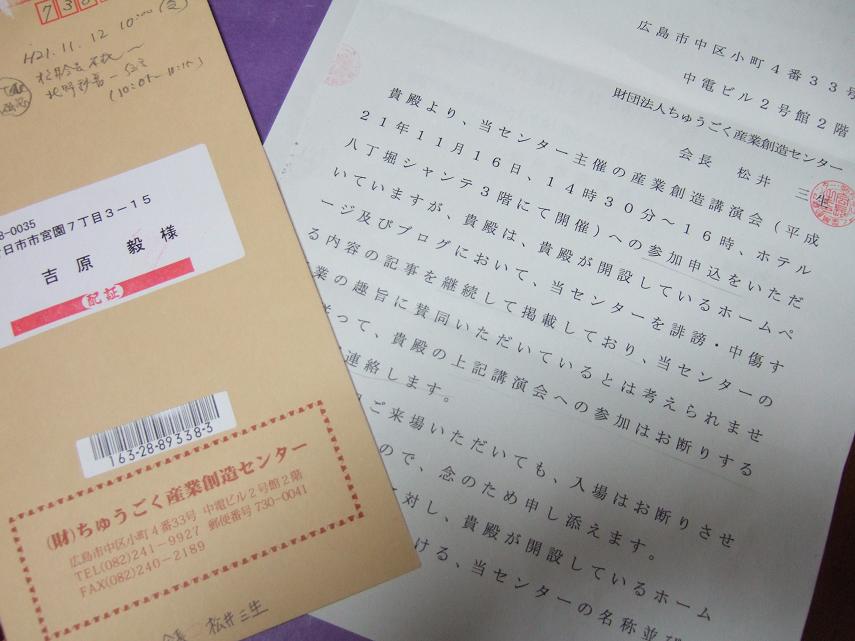 H21.11.12 10:00
8-0035
日市市宮園7丁目3-15
吉原 毅 様
(配証)
163-28-89338-3
(財)ちゅうごく産業創造センター
広島市中区小町4番33号 中電ビル2号館2階
TEL(082)241-9927 郵便番号730-0041
FAX(082)240-2189
会長 松井三生
広島市中区小町4番33号
中電ビル2号館2階
財団法人ちゅうごく産業創造センター
会長 松井 三生
貴殿より、当センター主催の産業創造講演会(平成
21年11月16日、14時30分~16時、ホテル
八丁堀シャンテ3階にて開催)への参加申込をいただ
いていますが、貴殿は、貴殿が開設しているホームペ
ージ及びブログにおいて、当センターを誹謗・中傷す
る内容の記事を継続して掲載しており、当センターの
業の趣旨に賛同いただいているとは考えられませ
従って、貴殿の上記講演会への参加はお断りする
連絡します。
ご来場いただいても、入場はお断りさせ
ので、念のため申し添えます。
対し、貴殿が開設しているホーム
ける、当センターの名称並び